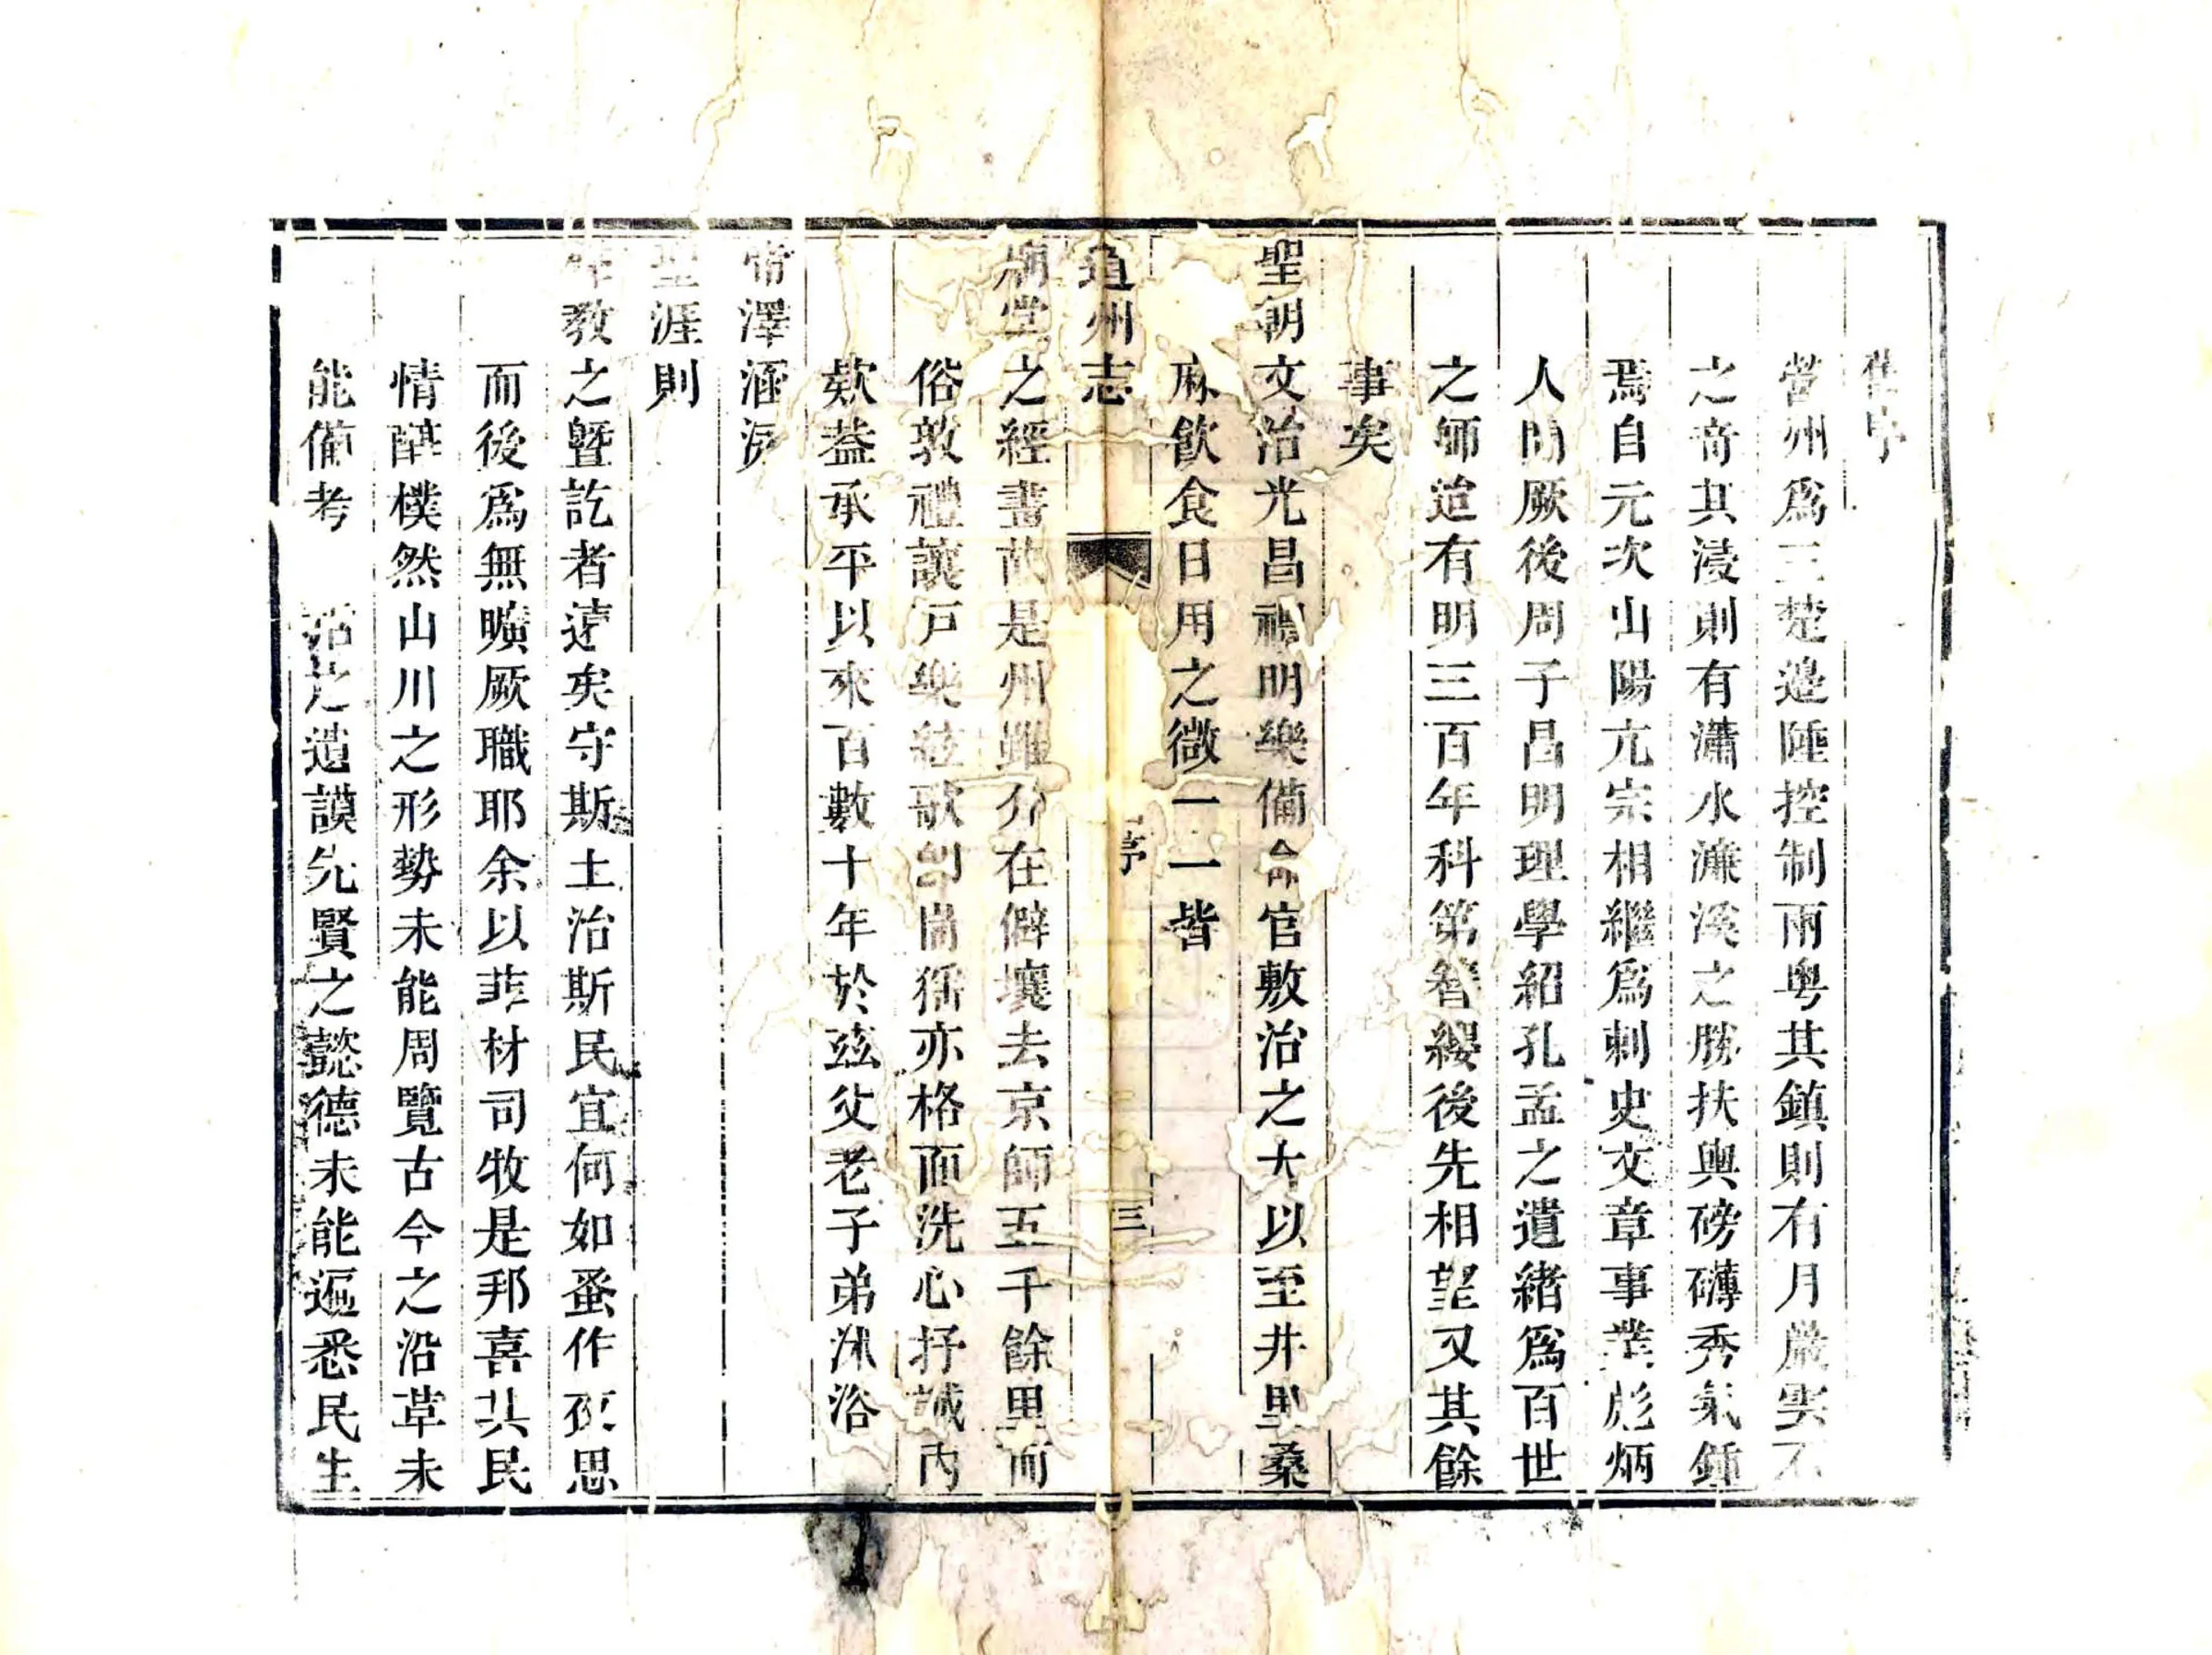 舊序
營州爲三楚邊陲控制兩粤其鎮則有月巖雲不
之奇其浸則有瀟水濂溪之勝扶輿磅礴秀氣鍾
焉自元次山陽亢宗相繼爲刺史文章事業彪炳
人間厥後周子昌明理學紹孔孟之遺緒爲百世
之師迨有明三百年科第簪纓後先相望又其餘
事矣
聖朝文治光昌禮明樂備命官敷治之大以至井里桑
麻飲食日用之微一一皆
道州志 序 三
廟堂之經畫故是州雖介在僻壤去京師五千餘里而
俗敦禮讓戸樂絃歌峝猺亦格面洗心抒誠内
欵葢承平以來百數十年於兹父老子弟沐浴
帝澤涵濡
聖涯則
年教之曁訖者遠矣守斯土治斯民宜何如蚤作夜思
而後爲無曠厥職耶余以菲材司牧是邦喜其民
情醇樸然山川之形勢未能周覽古今之沿革未
能備考 之遺謨先賢之懿德未能遍悉民生